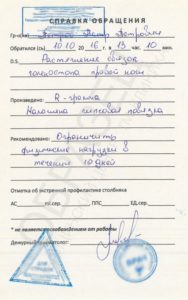 СПРАВКА ОБРАЩЕНИЯ
Гр-ин(ка) Петров Петр Петрович
Обратился (лась) 10.10 2016 г. в 13 час. 10 мин.
D.S. Растяжение связок
голеностопа правой ноги
Произведено: R-грамма
Наложена гипсовая повязка
Рекомендовано: Ограничить
физические нагрузки в
течении 10 дней
Отметка об экстренной профилактике столбняка
АС гл.сер. ППС ЕД.сер.
* не является освобождением от работы
Дежурный травматолог:
ВРАЧ